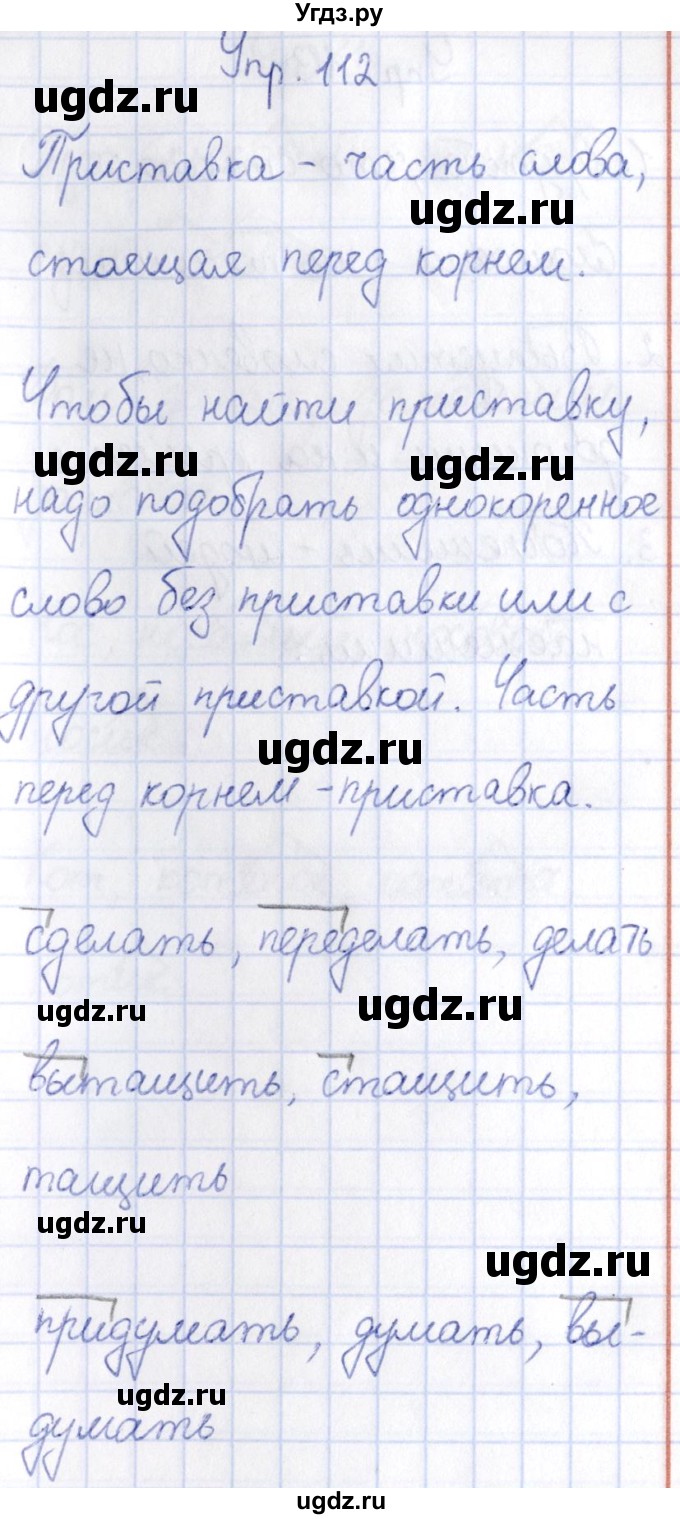 Угдз.ру
Упр. 112
ugdz.ru
Приставка - часть слова,
ugdz.ru
стоящая перед корнем.
Чтобы найти приставку,
ugdz.ru ugdz.ru
надо подобрать однокоренное
слово без приставки или с
другой приставкой. Часть
ugdz.ru
перед корнем - приставка.
сделать, переделать, делать
ugdz.ru ugdz.ru
вытащить, стащить,
тащить
ugdz.ru
ugdz.ru
придумать, думать, вы-
ugdz.ru
думать
ugdz.ru